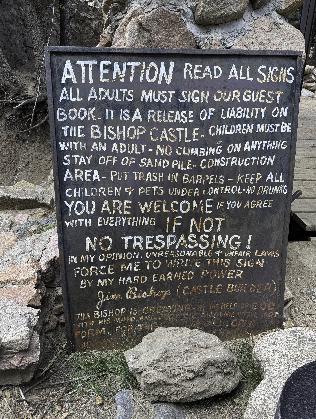 ATTENTION READ ALL SIGNS
ALL ADULTS MUST SIGN OUR GUEST
BOOK. IT IS A RELEASE OF LIABILITY ON
THE BISHOP CASTLE- CHILDREN MUST BE
WITH AN ADULT- NO CLIMBING ON ANYTHING
STAY OFF OF SAND PILE- CONSTRUCTION
AREA- PUT TRASH IN BARRELS- KEEP ALL
CHILDREN & PETS UNDER CONTROL- NO DRUNKS
YOU ARE WELCOME IF YOU AGREE
WITH EVERYTHING IF NOT
NO TRESPASSING!
IN MY OPINION, UNREASONABLE & UNFAIR LAWS
FORCE ME TO WRITE THIS SIGN
BY MY HARD EARNED POWER
Jim Bishop (CASTLE BUILDER)
THE BISHOP IS
WITH HIS
FORM.